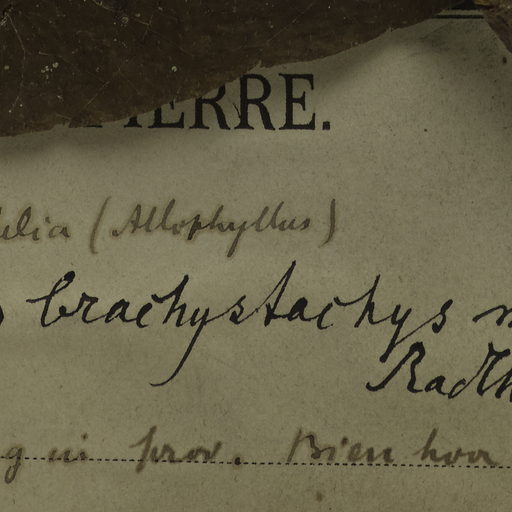 PIERRE.
delia (Allophyllus)
brachystachys
Radlk
in prov. Bien hoa